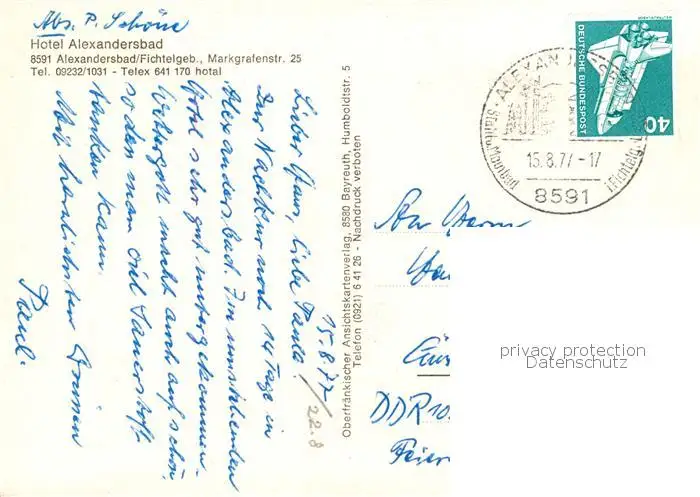 Abs. P. Schöne
Hotel Alexandersbad
8591 Alexandersbad/Fichtelgeb., Markgrafenstr. 25
Tel. 09232/1031 - Telex 641 170 hotal
15.8.77
/22.8
Lieber Hans, liebe Paula!
Zur Nachkur noch 14 Tage in
Alexandersbad. Im umstehenden
Hotel sehr gut untergekommen.
Wettergott macht auch auf schön,
so dass man viel Sauerstoff
tanken kann.
Mit herzlichsten Grüssen
Paul.
Oberfränkischer Ansichtskartenverlag, 8580 Bayreuth, Humboldtstr. 5
Telefon (0921) 6 41 26 - Nachdruck verboten
DEUTSCHE BUNDESPOST
40
15.8.77 - 17
8591
An Herrn
DDR 10
privacy protection
Datenschutz